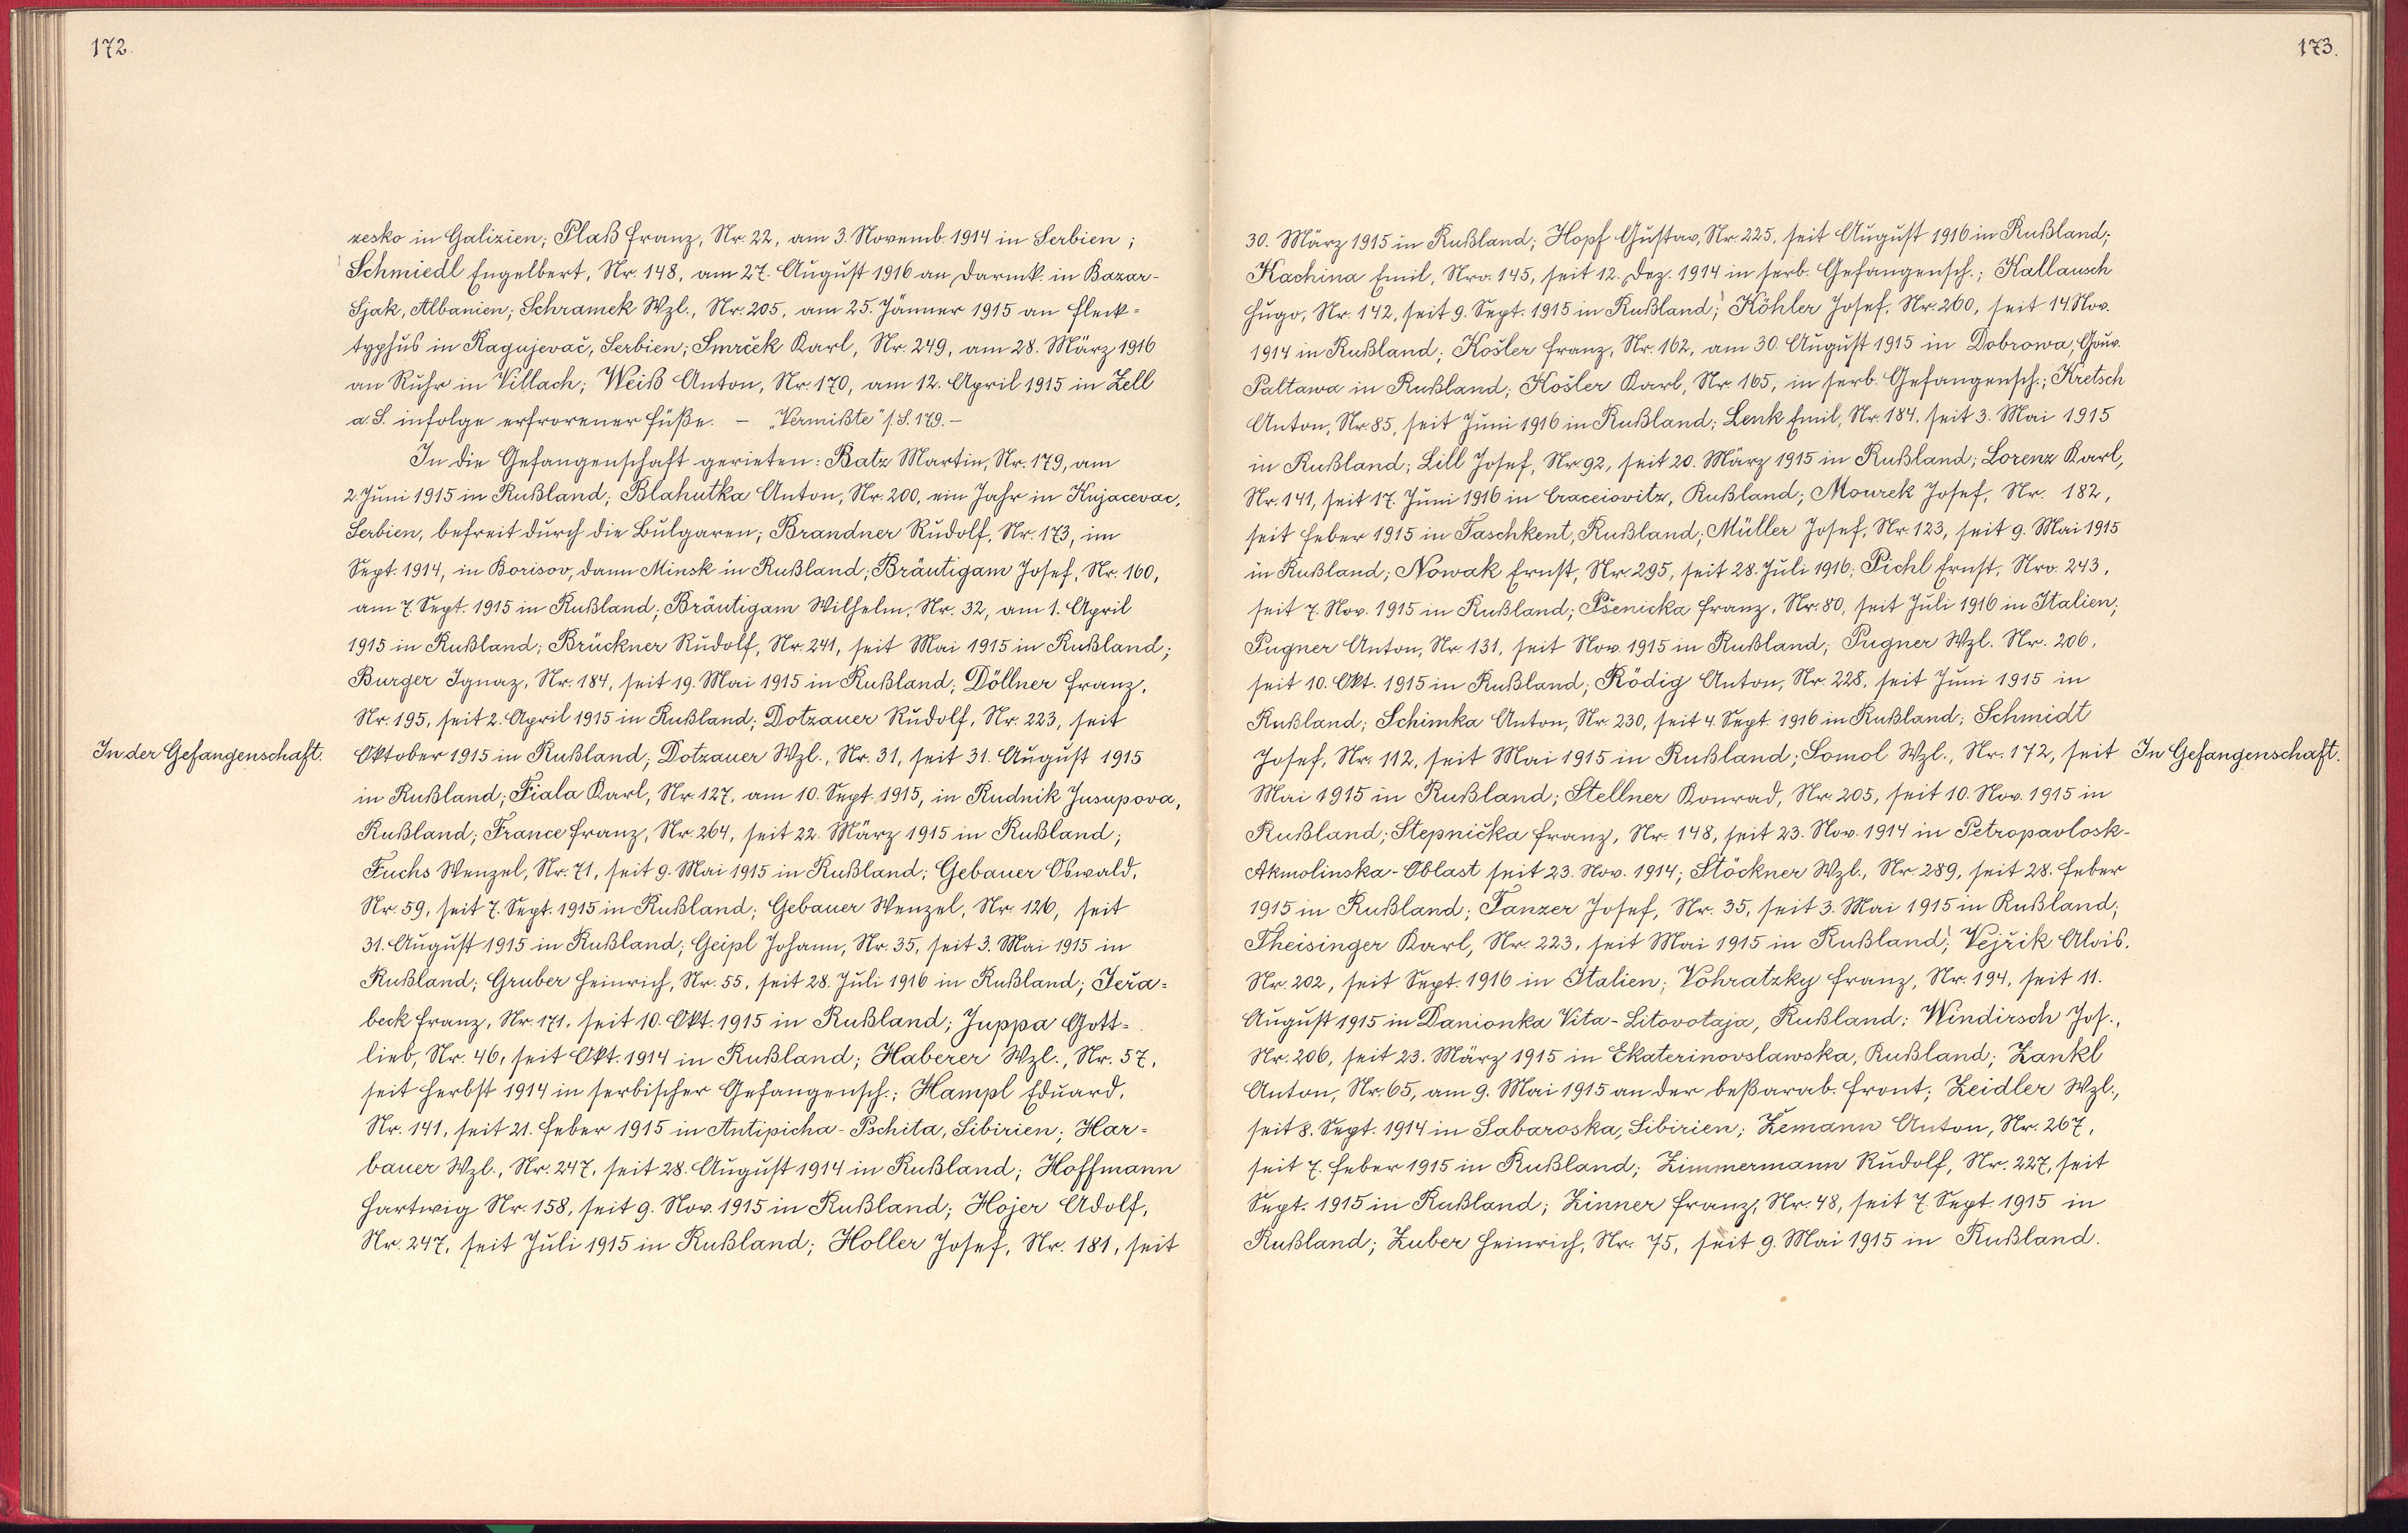 172.
zesko in Galizien; Plaß Franz, Nr. 22, am 3. Novemb. 1914 in Serbien;
Schmiedl Engelbert, Nr. 148, am 27. August 1916 an Darmk. in Bazar-
Sjak, Albanien; Schramek Wzl., Nr. 205, am 25. Jänner 1915 an Fleck-
typhus in Ragujevač, Serbien; Smrček Karl, Nr. 249, am 28. März 1916
an Ruhr in Villach; Weiß Anton, Nr. 170, am 12. April 1915 in Zell
a. S. infolge erfrorener Füße. – „Vermißte" s. S. 179. –
In die Gefangenschaft gerieten: Batz Martin, Nr. 179, am
2. Juni 1915 in Rußland; Blahutka Anton, Nr. 200, ein Jahr in Knjacevac,
Serbien, befreit durch die Bulgaren; Brandner Rudolf, Nr. 173, im
Sept. 1914, in Borisov, dann Minsk in Rußland; Bräutigam Josef, Nr. 160,
am 7. Sept. 1915 in Rußland; Bräutigam Wilhelm, Nr. 32, am 1. April
1915 in Rußland; Brückner Rudolf, Nr. 241, seit Mai 1915 in Rußland;
Burger Ignaz, Nr. 184, seit 19. Mai 1915 in Rußland; Döllner Franz,
Nr. 195, seit 2. April 1915 in Rußland; Dotzauer Rudolf, Nr. 223, seit
In der Gefangenschaft.
Oktober 1915 in Rußland; Dotzauer Wzl., Nr. 31, seit 31. August 1915
in Rußland; Fiala Karl, Nr. 127, am 10. Sept. 1915, in Rudnik Jusupova,
Rußland; France Franz, Nr. 264, seit 22. März 1915 in Rußland;
Fuchs Wenzel, Nr. 71, seit 9. Mai 1915 in Rußland; Gebauer Oswald,
Nr. 59, seit 7. Sept. 1915 in Rußland; Gebauer Wenzel, Nr. 126, seit
31. August 1915 in Rußland; Geipl Johann, Nr. 35, seit 3. Mai 1915 in
Rußland; Gruber Heinrich, Nr. 55, seit 28. Juli 1916 in Rußland; Jeřa-
beck Franz, Nr. 171, seit 10. Okt. 1915 in Rußland; Juppa Gott-
lieb, Nr. 46, seit Okt. 1914 in Rußland; Haberer Wzl., Nr. 57,
seit Herbst 1914 in serbischer Gefangensch.; Hampl Eduard,
Nr. 141, seit 21. Feber 1915 in Antipicha-Pschita, Sibirien; Har-
bauer Wzl., Nr. 247, seit 28. August 1914 in Rußland; Hoffmann
Hartwig Nr. 158, seit 9. Nov. 1915 in Rußland; Hojer Adolf,
Nr. 247, seit Juli 1915 in Rußland; Holler Josef, Nr. 181, seit
173.
30. März 1915 in Rußland; Hopf Gustav, Nr. 225, seit August 1916 in Rußland;
Kachina Emil, Nro. 145, seit 12. Dez. 1914 in serb. Gefangensch.; Kallausch
Hugo, Nr. 142, seit 9. Sept. 1915 in Rußland; Köhler Josef, Nr. 260, seit 14. Nov.
1914 in Rußland; Košler Franz, Nr. 162, am 30. August 1915 in Dobrowa, Gouv.
Paltawa in Rußland; Košler Karl, Nr. 165, in serb. Gefangensch.; Kretsch
Anton, Nr. 85, seit Juni 1916 in Rußland; Lenk Emil, Nr. 184, seit 3. Mai 1915
in Rußland; Lill Josef, Nr. 92, seit 20. März 1915 in Rußland; Lorenz Karl,
Nr. 141, seit 17. Juni 1916 in Cracciovitz, Rußland; Mourek Josef, Nr. 182,
seit Feber 1915 in Taschkent, Rußland; Müller Josef, Nr. 123, seit 9. Mai 1915
in Rußland; Nowak Ernst, Nr. 295, seit 28. Juli 1916; Pichl Ernst, Nro. 243,
seit 7. Nov. 1915 in Rußland; Pšenicka Franz, Nr. 80, seit Juli 1916 in Italien;
Pugner Anton, Nr. 131, seit Nov. 1915 in Rußland; Pugner Wzl. Nr. 206,
seit 10. Okt. 1915 in Rußland; Rödig Anton, Nr. 228, seit Juni 1915 in
Rußland; Schimka Anton, Nr. 230, seit 4. Sept. 1916 in Rußland; Schmidt
Josef, Nr. 112, seit Mai 1915 in Rußland; Somol Wzl., Nr. 172, seit
In Gefangenschaft.
Mai 1915 in Rußland; Stellner Konrad, Nr. 205, seit 10. Nov. 1915 in
Rußland; Stepnička Franz, Nr. 148, seit 23. Nov. 1914 in Petropavlosk-
Akmolinska-Oblast seit 23. Nov. 1914; Stöckner Wzl., Nr. 289, seit 28. Feber
1915 in Rußland; Tanzer Josef, Nr. 35, seit 3. Mai 1915 in Rußland;
Theisinger Karl, Nr. 223, seit Mai 1915 in Rußland; Vejřik Alois,
Nr. 202, seit Sept. 1916 in Italien; Vohratzky Franz, Nr. 194, seit 11.
August 1915 in Danionka Vita-Litovotaja, Rußland; Windirsch Jos.,
Nr. 206, seit 23. März 1915 in Ekaterinovslawska, Rußland; Zankl
Anton, Nr. 65, am 9. Mai 1915 an der beßarab. Front; Zeidler Wzl.,
seit 8. Sept. 1914 in Sabaroska, Sibirien; Zemann Anton, Nr. 267,
seit 7. Feber 1915 in Rußland; Zimmermann Rudolf, Nr. 227, seit
Sept. 1915 in Rußland; Zinner Franz, Nr. 48, seit 7. Sept. 1915 in
Rußland; Zuber Heinrich, Nr. 75, seit 9. Mai 1915 in Rußland.